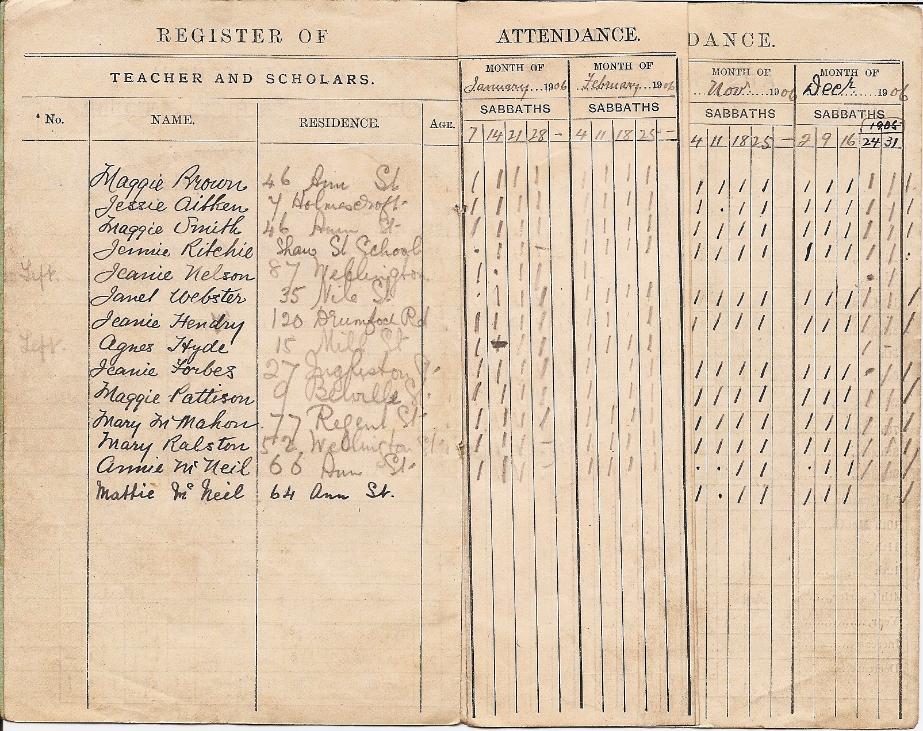 REGISTER OF ATTENDANCE. DANCE.
TEACHER AND SCHOLARS.
MONTH OF MONTH OF MONTH OF MONTH OF
January 1906 February 1906 Novr 1906 Decr 1906
SABBATHS SABBATHS SABBATHS SABBATHS
No. NAME. RESIDENCE. AGE. 1905
7 14 21 28 – 4 11 18 25 – 4 11 18 25 – 2 9 16 24 31
Maggie Brown 46 Ann St
Jessie Aitken 7 Holmscroft
Maggie Smith 46 Ann St
Jennie Ritchie Shaw St School
Left. Jeanie Nelson 87 Wellington
Janet Webster 35 Nile St
Jeanie Hendry 120 Drumfrochar Rd
Left. Agnes Hyde 15 Mill St
Jeanie Forbes 27 Ingleston St.
Maggie Pattison 9 Belville St.
Mary McMahon 77 Regent St
Mary Ralston 52 Wellington St
Annie McNeil 66 Ann St.
Mattie McNeil 64 Ann St.